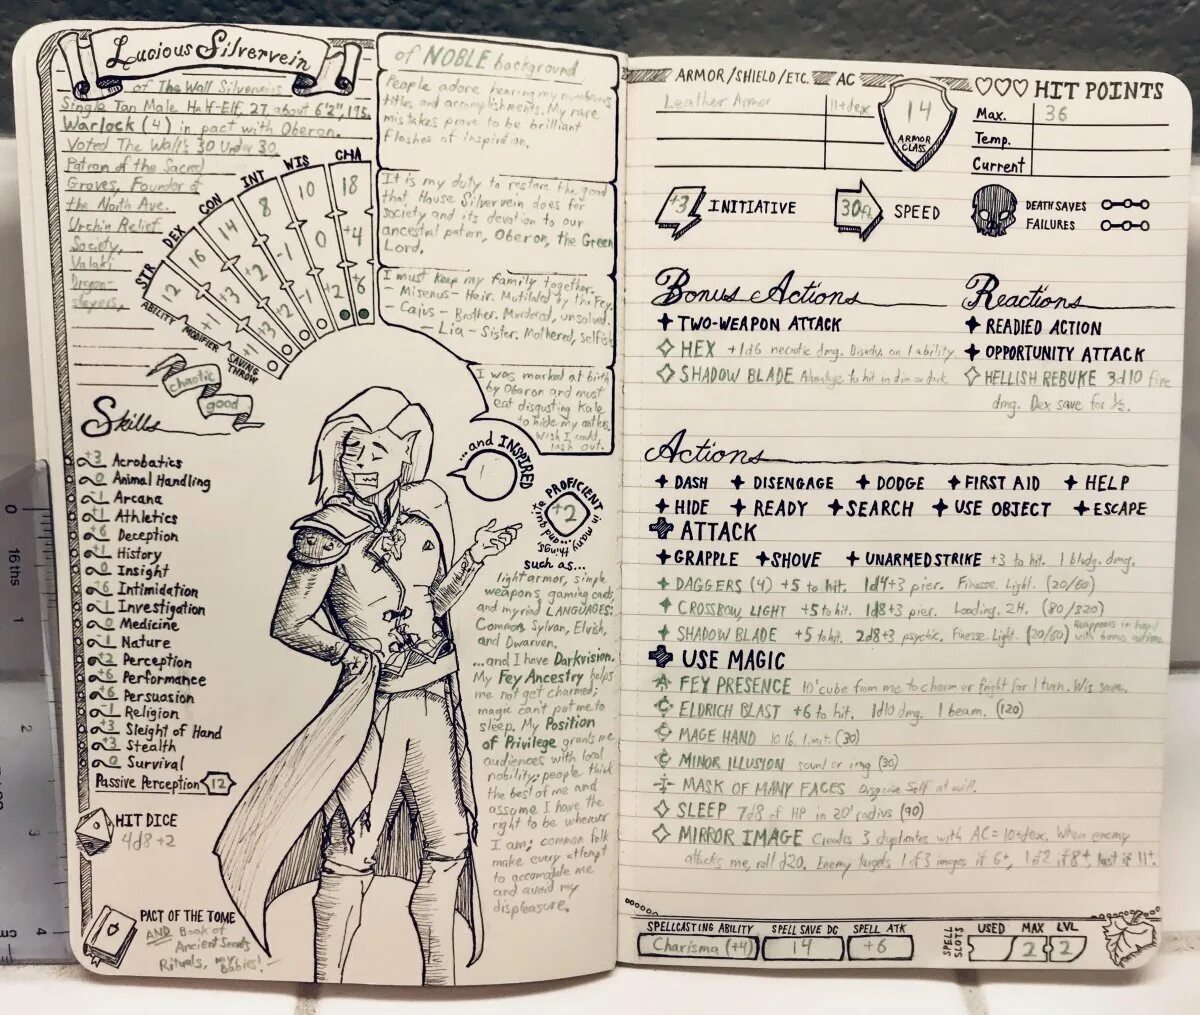 Lucious Silvervein
of The Wall Silverveins
Single Tan Male Half-Elf, 27, about 6'2", 175.
Warlock (4) in pact with Oberon.
Voted The Wall's 30 Under 30.
Patron of the Sacred
Groves, Founder of
the North Ave.
Urchin Relief
Society,
Valaki
Dragon-
slayers,
STR DEX CON INT WIS CHA
12 16 14 8 10 18
+1 +3 +2 -1 0 +4
+1 +3 +2 -1 +2 +6
ABILITY
MODIFIER
SAVING THROW
chaotic
good
of NOBLE background
People adore hearing my numerous
titles and accomplishments. My rare
mistakes prove to be brilliant
flashes of inspiration.
It is my duty to restore the good
that House Silvervein does for
society and its devotion to our
ancestral patron, Oberon, the Green
Lord.
I must keep my family together.
- Misenus - Heir. Mutilated by the Fey.
- Caius - Brother. Murdered, unsolved.
- Lia - Sister. Mothered, selfish
I was marked at birth
by Oberon and must
eat disgusting Kale
to hide my antlers.
Wish I could
lash out.
Skills
+3 Acrobatics
0 Animal Handling
-1 Arcana
+1 Athletics
+6 Deception
-1 History
0 Insight
+6 Intimidation
-1 Investigation
0 Medicine
-1 Nature
+2 Perception
+6 Performance
+6 Persuasion
-1 Religion
+3 Sleight of Hand
+3 Stealth
0 Survival
Passive Perception 12
HIT DICE
4d8+2
PACT OF THE TOME
AND Book of
Ancient Secrets
Rituals, my
babies!
...and INSPIRED
PROFICIENT
in many things...
and quite
+2
such as...
light armor, simple
weapons, gaming cards,
and myriad LANGUAGES:
Common, Sylvan, Elvish,
and Dwarven.
...and I have Darkvision.
My Fey Ancestry helps
me not get charmed;
magic can't put me to
sleep. My Position
of Privilege grants me
audiences with local
nobility; people think
the best of me and
assume I have the
right to be wherever
I am; common folk
make every attempt
to accomodate me
and avoid my
displeasure.
ARMOR/SHIELD/ETC. AC
Leather Armor 11+dex
14
ARMOR CLASS
HIT POINTS
Max. 36
Temp.
Current
+3 INITIATIVE
30ft. SPEED
DEATH SAVES
FAILURES
Bonus Actions
TWO-WEAPON ATTACK
HEX +1d6 necrotic dmg. Disadv. on 1 ability.
SHADOW BLADE Advantage to hit in dim or dark
Reactions
READIED ACTION
OPPORTUNITY ATTACK
HELLISH REBUKE 3d10 fire
dmg. Dex save for 1/2.
Actions
DASH DISENGAGE DODGE FIRST AID HELP
HIDE READY SEARCH USE OBJECT ESCAPE
ATTACK
GRAPPLE SHOVE UNARMED STRIKE +3 to hit. 1 bludg. dmg.
DAGGERS (4) +5 to hit. 1d4+3 pier. Finesse. Light. (20/60)
CROSSBOW, LIGHT +5 to hit. 1d8+3 pier. Loading. 2H. (80/320)
SHADOW BLADE +5 to hit. 2d8+3 psychic. Finesse. Light. (20/60) Reappears in hand with bonus action.
USE MAGIC
FEY PRESENCE 10' cube from me to charm or fright for 1 turn. Wis save.
ELDRICH BLAST +6 to hit. 1d10 dmg. 1 beam. (120)
MAGE HAND 10 lb. limit. (30)
MINOR ILLUSION sound or img (30)
MASK OF MANY FACES Disguise Self at will.
SLEEP 7d8 of HP in 20' radius (90)
MIRROR IMAGE Creates 3 duplicates with AC=10+dex. When enemy
attacks me, roll d20. Enemy targets 1 of 3 images if 6+, 1 of 2 if 8+, last if 11+.
SPELLCASTING ABILITY SPELL SAVE DC SPELL ATK
Charisma (+4) 14 +6
SPELL SLOTS
USED MAX LVL
2 2
0
16 ths
1
2
3
4